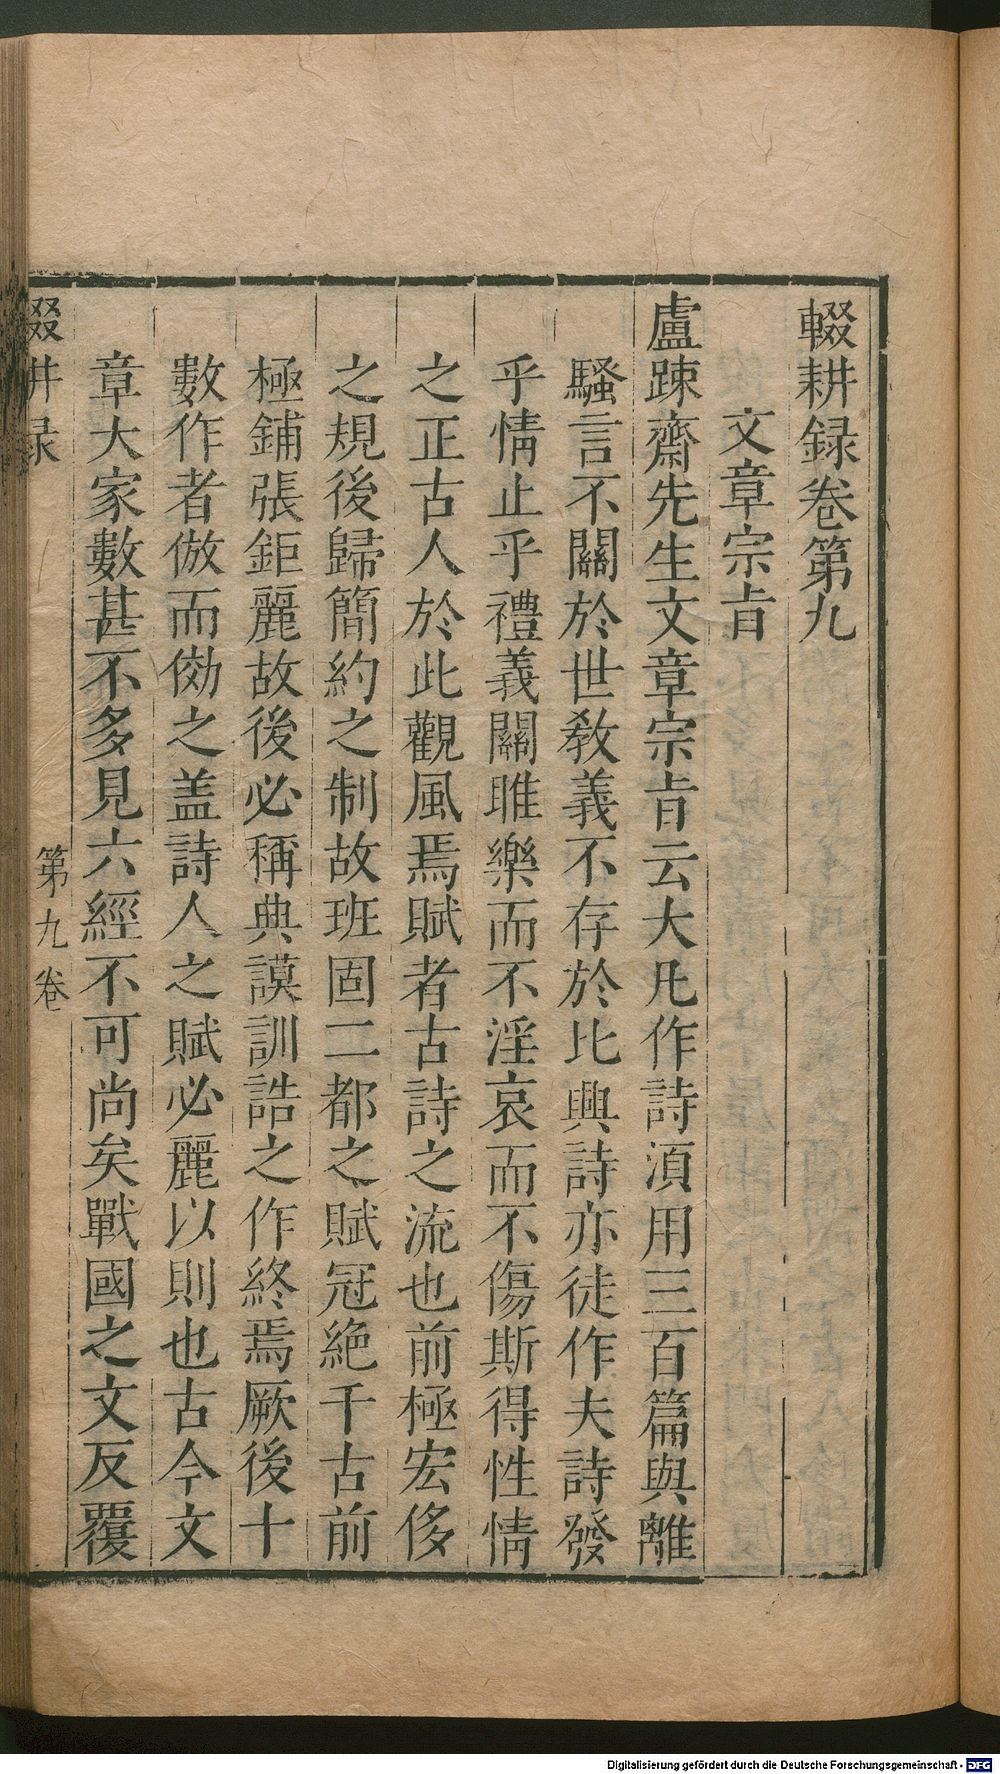 輟耕録卷第九
文章宗㫖
盧踈齋先生文章宗㫖云大凡作詩湏用三百篇與離
騷言不關於世敎義不存於比興詩亦徒作夫詩發
乎情止乎禮義關睢樂而不淫哀而不傷斯得性情
之正古人於此觀風焉賦者古詩之流也前極宏侈
之規後歸簡約之制故班固二都之賦冠絶千古前
極鋪張鉅麗故後必稱典謨訓誥之作終焉厥後十
數作者倣而傚之盖詩人之賦必麗以則也古今文
章大家數甚不多見六經不可尚矣戰國之文反覆
輟耕录
第九卷
Digitalisierung gefördert durch die Deutsche Forschungsgemeinschaft - DFG